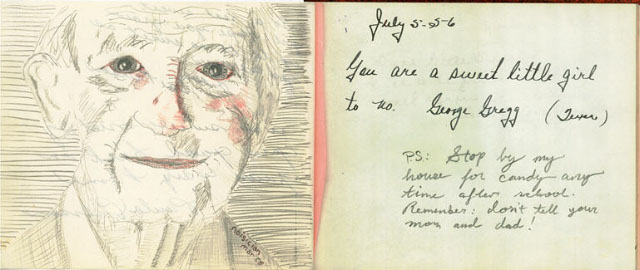 July 5-556
You are a sweet little girl
to us. George Gregg (Texas)
PS: Stop by my
house for candy any
time after school.
Remember: don't tell your
mom and dad!